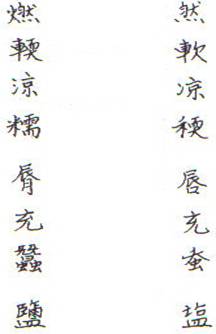 燃 然
輭 軟
涼 凉
糯 稬
脣 唇
充 充
蠶 蚕
鹽 塩